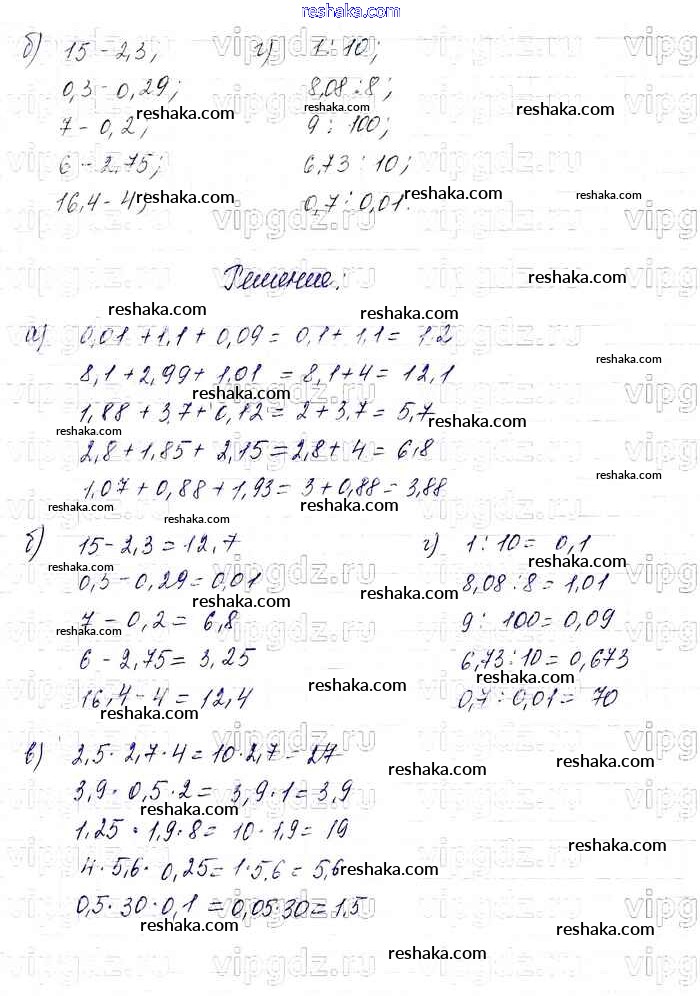 reshaka.com
б) 15 - 2,3; г) 1 : 10;
0,3 - 0,29; 8,08 : 8;
7 - 0,2; 9 : 100;
6 - 2,75; 6,73 : 10;
16,4 - 4; 0,7 : 0,01.
Решение:
а) 0,01 + 1,1 + 0,09 = 0,1 + 1,1 = 1.2
8,1 + 2,99 + 1,01 = 8,1 + 4 = 12,1
1,88 + 3,7 + 0,12 = 2 + 3,7 = 5,7
2,8 + 1,85 + 2,15 = 2,8 + 4 = 6,8
1,07 + 0,88 + 1,93 = 3 + 0,88 = 3,88
б) 15 - 2,3 = 12,7 г) 1 : 10 = 0,1
0,3 - 0,29 = 0,01 8,08 : 8 = 1,01
7 - 0,2 = 6,8 9 : 100 = 0,09
6 - 2,75 = 3,25 6,73 : 10 = 0,673
16,4 - 4 = 12,4 0,7 : 0,01 = 70
в) 2,5 · 2,7 · 4 = 10 · 2,7 = 27
3,9 · 0,5 · 2 = 3,9 · 1 = 3,9
1,25 · 1,9 · 8 = 10 · 1,9 = 19
4 · 5,6 · 0,25 = 1 · 5,6 = 5,6
0,5 · 30 · 0,1 = 0,05 · 30 = 1,5